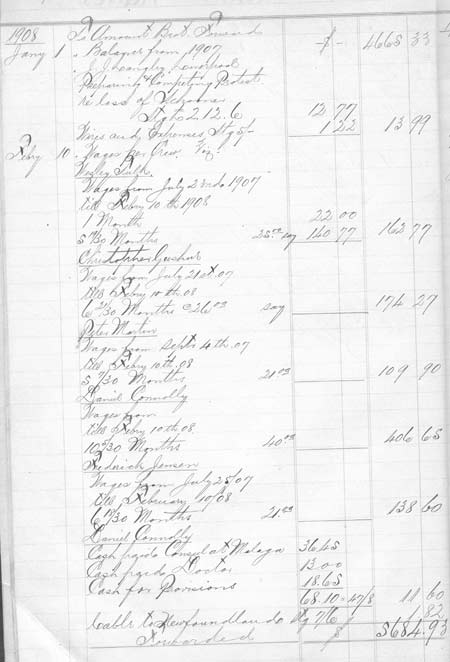 1908 To Amount Brot. Forward $ - 4665 33
Jany 1 " Balance from 1907
" J. J. Langley Liverpool
Preparing & Completing Protest
re loss of Schooner
Stg £ 2.12.6 12 77
Wires and Extremes Stg 5/- 1 22 13 99
Feby 10 - Wages for Crew. Viz-
Wesley Pulk
Wages from July 23rd 1907
till Feby 10th 1908
1 Month 22 00
5 19/30 Months 25.00 say 140 77 162 77
Christopher
Wages from July 21st 07
till Feby 10th 08
6 21/30 Months @ 26.00 say 174 27
Peter Martin
Wages from Sept 4th. 07
till Feby 10th. 08
5 7/30 Months 21.00 109 90
Daniel Connolly
Wages from
till Feby 10th 08
10 5/30 Months 40.00 406 65
Fredrick Jensen
Wages from July 25/07
till February 10/08
6 18/30 Months 21.00 138 60
Daniel Connolly
Cash paid Consul at Malaga 36.45
Cash paid Doctor 13.00
Cash for Provisions 18.65
68.10 = 47/8 11 60
Cable to Newfoundland Stg 7/6 82
Forwarded $ 5684.93